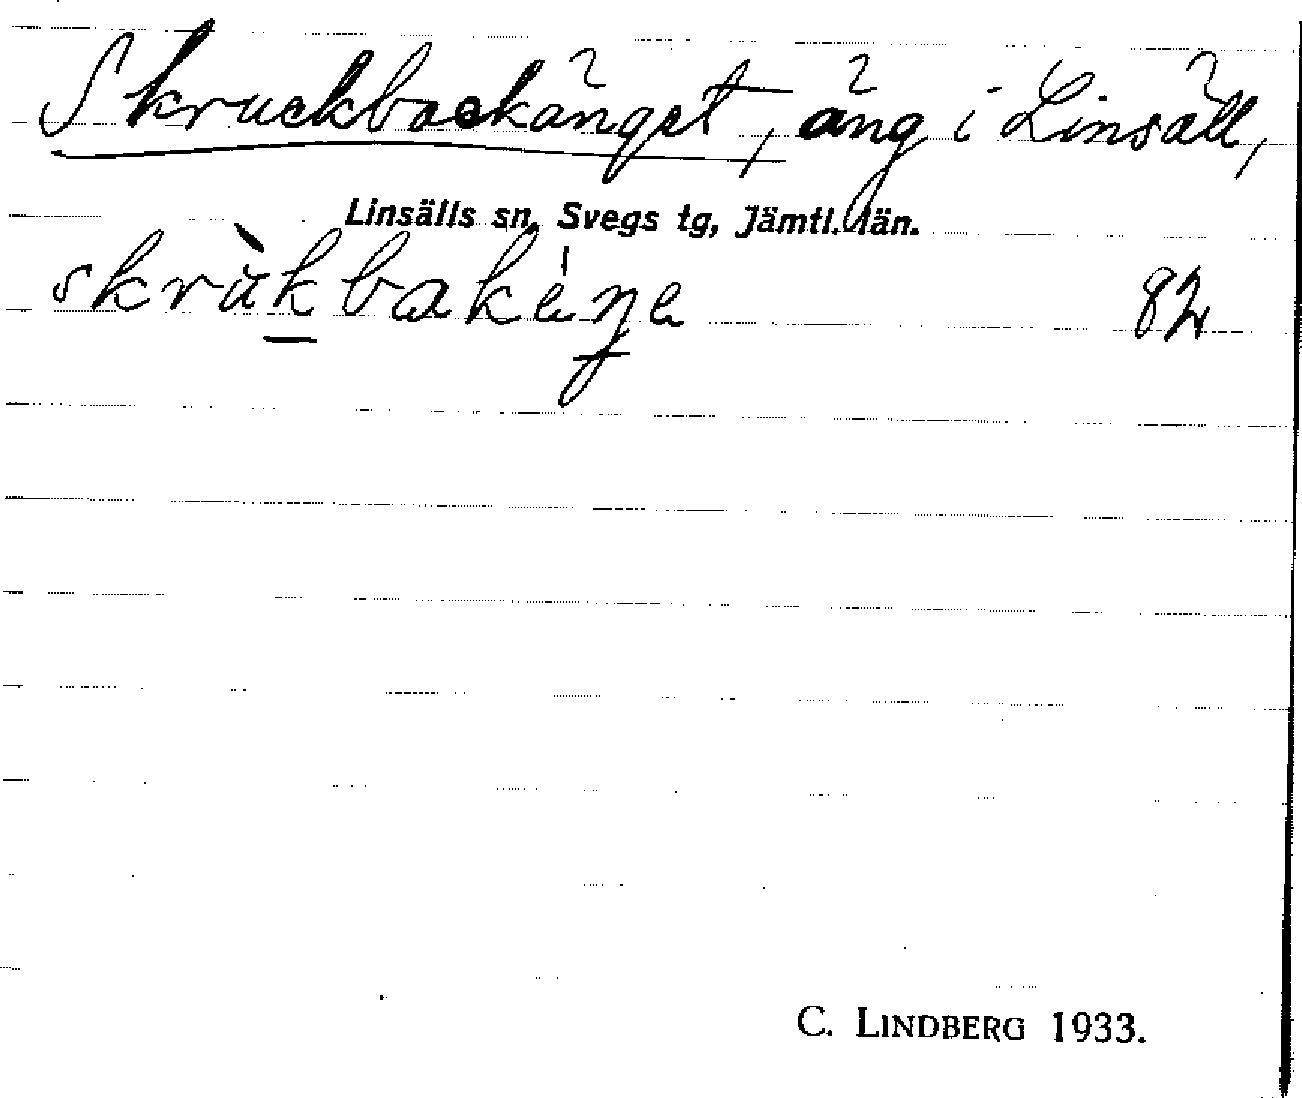 Skruckbackänget, äng i Linsäll,
Linsälls sn, Svegs tg, Jämtl. län.
82
C. LINDBERG 1933.